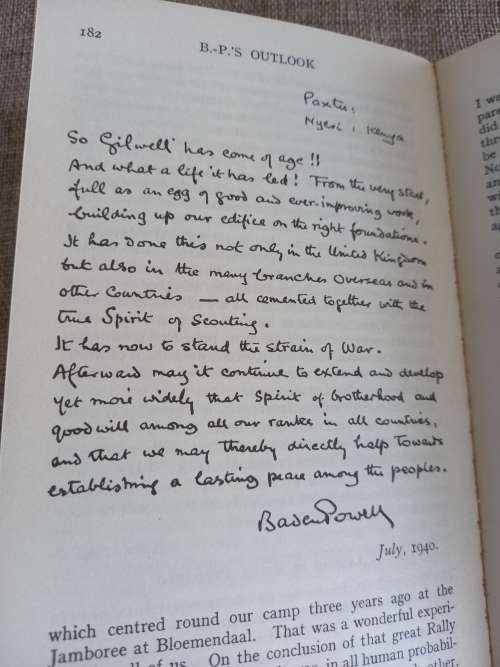 182
B.-P.'S OUTLOOK
Paxtu,
Nyeri, Kenya
So Gilwell has come of age!!
And what a life it has led! From the very start,
full as an egg of good and ever-improving work,
building up our edifice on the right foundations.
It has done this not only in the United Kingdom
but also in the many branches Overseas and in
other Countries — all cemented together with the
true Spirit of Scouting.
It has now to stand the strain of War.
Afterward may it continue to extend and develop
yet more widely that Spirit of brotherhood and
goodwill among all our ranks in all countries,
and that we may thereby directly help towards
establishing a lasting peace among the peoples.
Baden Powell
July, 1940.
which centred round our camp three years ago at the
Jamboree at Bloemendaal. That was a wonderful experi-
of us. On the conclusion of that great Rally
in all human probabil-
I wa
pare
did
thr
be
No
an
wi
th
ag